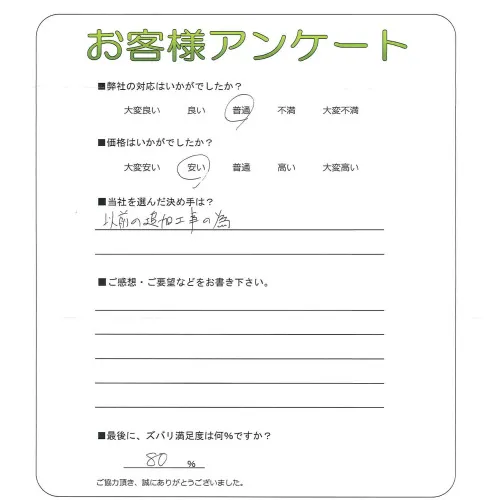 お客様アンケート
■弊社の対応はいかがでしたか？
大変良い 良い 普通 不満 大変不満
■価格はいかがでしたか？
大変安い 安い 普通 高い 大変高い
■当社を選んだ決め手は？
以前の追加工事の為
■ご感想・ご要望などをお書き下さい。
■最後に、ズバリ満足度は何%ですか？
80 %
ご協力頂き、誠にありがとうございました。